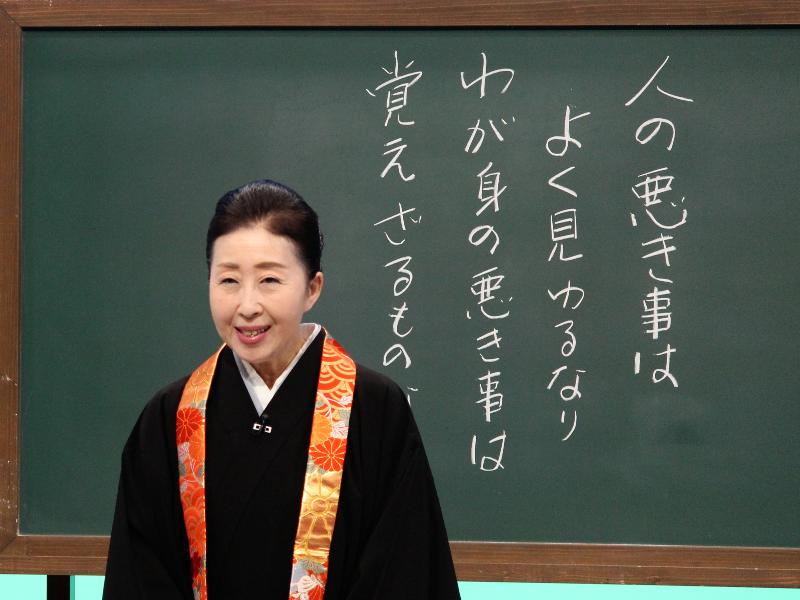 人の悪き事は
よく見ゆるなり
わが身の悪き事は
覚えざるもの